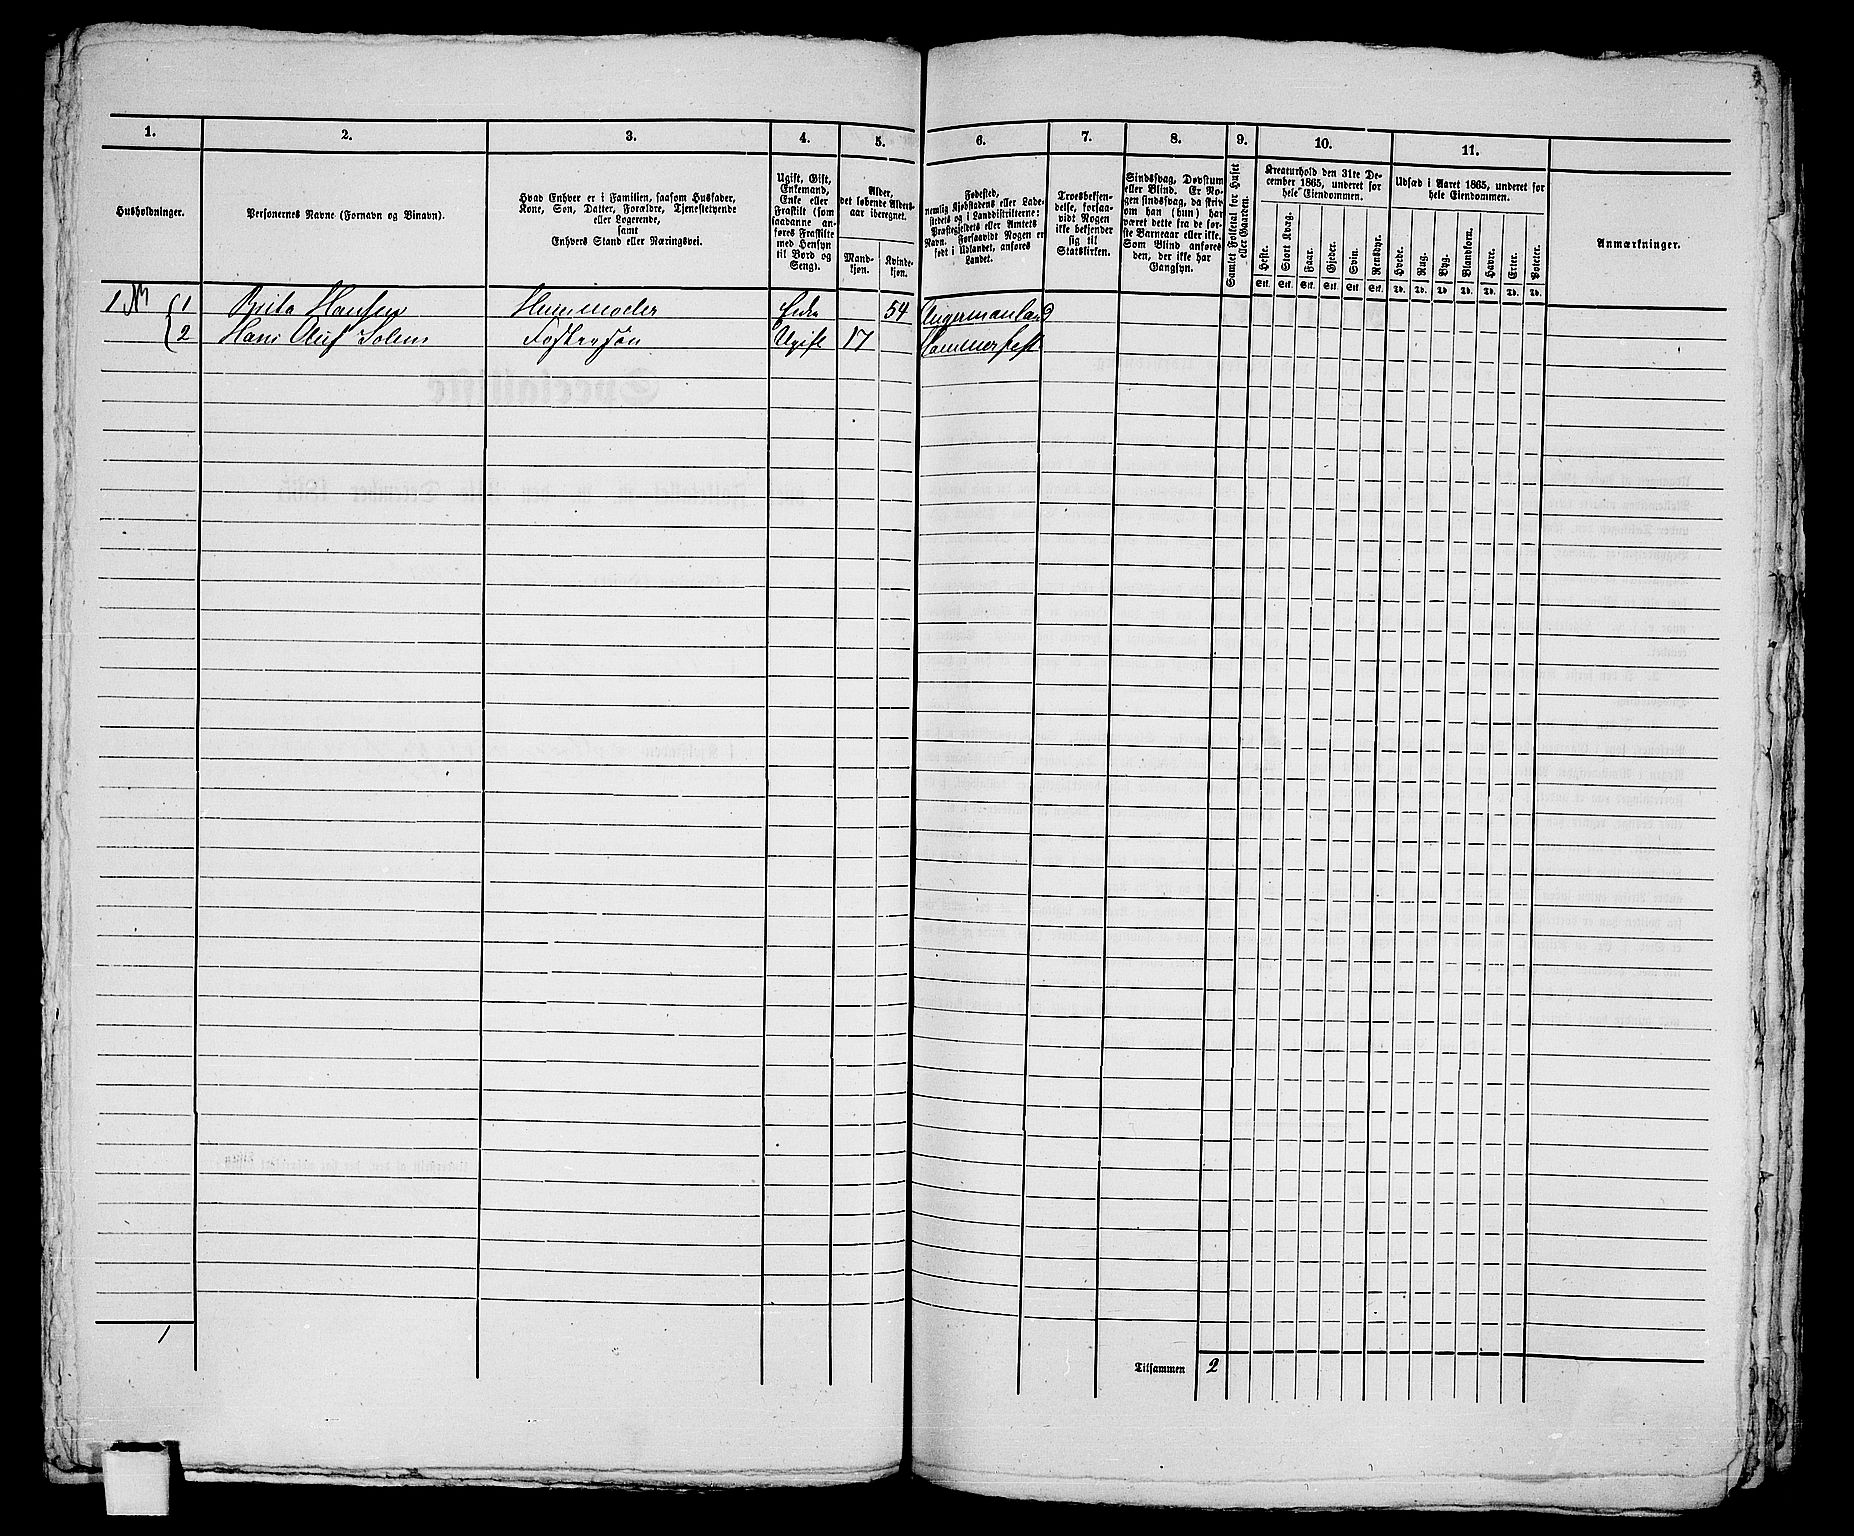 1. 2. 3. 4. 5. 6. 7. 8. 9. 10. 11.
Husholdninger.
Personernes Navne (Fornavn og Binavn).
Hvad Enhver er i Familien, saasom Husfader,
Kone, Søn, Datter, Forældre, Tjenestetyende
eller Logerende,
samt
Enhvers Stand eller Næringsvei.
Ugift, Gift,
Enkemand,
Enke eller
Fraskilt (som
saadanne an-
føres Fraskilte
med Hensyn
til Bord og
Seng).
Alder,
det løbende Alders-
aar iberegnet.
Mand-
kjøn.
Kvinde-
kjøn.
Fødested,
nemlig Kjøbstadens eller Lade-
stedets og i Landdistrikterne:
Præstegjeldets eller Amtets
Navn. Forsaavidt Nogen er
født i Udlandet, anføres
Landet.
Troesbekjen-
delse, forsaa-
vidt Nogen
ikke bekjender
sig til
Statskirken.
Sindssvag, Døvstum
eller Blind. Er No-
gen sindssvag, da skriv
om han (hun) har
været dette fra de før-
ste Barneaar eller ikke.
Som Blind anføres
den, der ikke har
Gangsyn.
Samlet Folketal for Huset
eller Gaarden.
Kreaturhold den 31te De-
cember 1865, underet for
hele Eiendommen.
Heste. Stort Kvæg. Faar. Gjeder. Svin. Rensdyr.
Stk. Stk. Stk. Stk. Stk. Stk.
Udsæd i Aaret 1865, underet for
hele Eiendommen.
Hvede. Rug. Byg. Blandkorn. Havre. Erter. Poteter.
Td. Td. Td. Td. Td. Td. Td.
Anmærkninger.
1 1 Brita Hansen Husmoder 54 Angermanland
2 Hans Oluf Solem Fostersøn Ugift 17 Hammerfest
1
Tilsammen 2